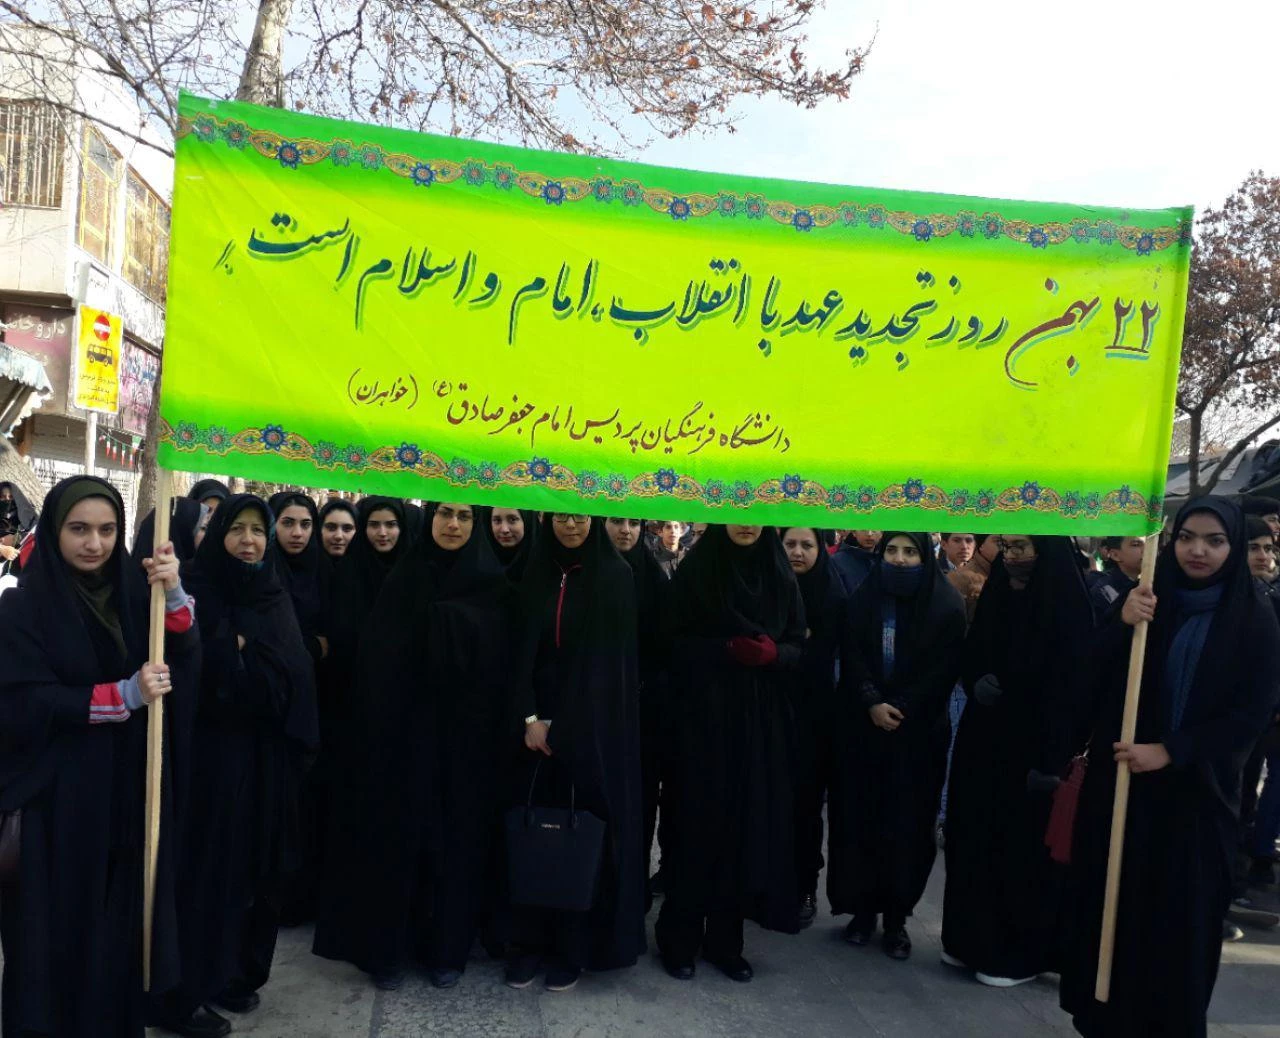 ۲۲ بهمن روز تجدید عهد با انقلاب، امام و اسلام است
دانشگاه فرهنگیان پردیس امام جعفر صادق (ع) (خواهران)